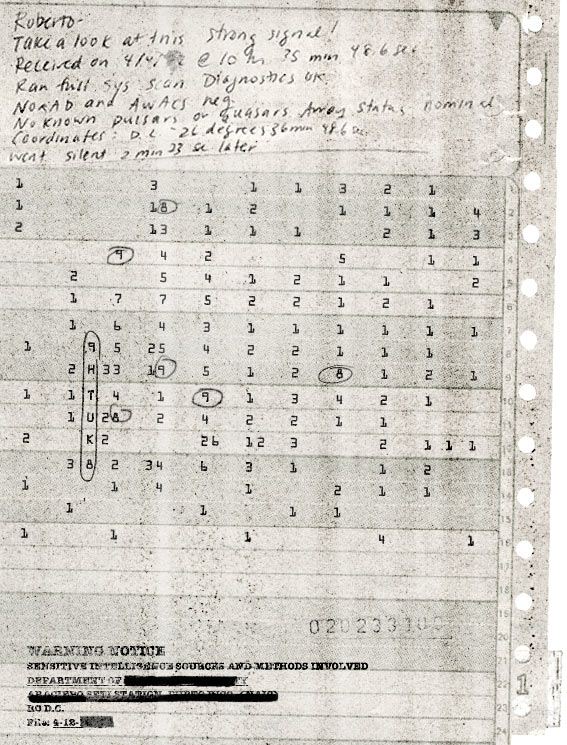 Roberto-
Take a look at this strong signal!
Received on 4/4/ @ 10 hr 35 min 48.6 sec
Ran full sys scan Diagnostics OK
NORAD and AWACS neg
No known pulsars or quasars Array status nominal
Coordinates: DEC -26 degrees 36 min 48.6 sec
Went silent 2 min 33 sec later
1 3 1 1 3 2 1 1
1 18 1 2 1 1 1 4 2
2 13 1 1 1 2 1 3 3
9 4 2 5 1 1 4
2 5 4 1 2 1 1 2 5
1 7 7 5 2 2 1 2 1 6
1 6 4 3 1 1 1 1 1 1
1 9 5 25 4 2 2 1 1 1
2 H 33 19 5 1 2 8 1 2 1
1 1 T 4 1 9 1 3 4 2 1 10
1 U 28 2 4 2 2 1 1
2 K 2 26 12 3 2 1 1 1
3 8 2 34 6 3 1 1 2
1 1 4 1 2 1 1 14
1 1 1 1 15
1 1 1 4 1 16
17
18
020233100 19
20
WARNING NOTICE
SENSITIVE INTELLIGENCE SOURCES AND METHODS INVOLVED
DEPARTMENT OF TY
SETI STATION,
RC D.C.
File: 4-12-
1
24